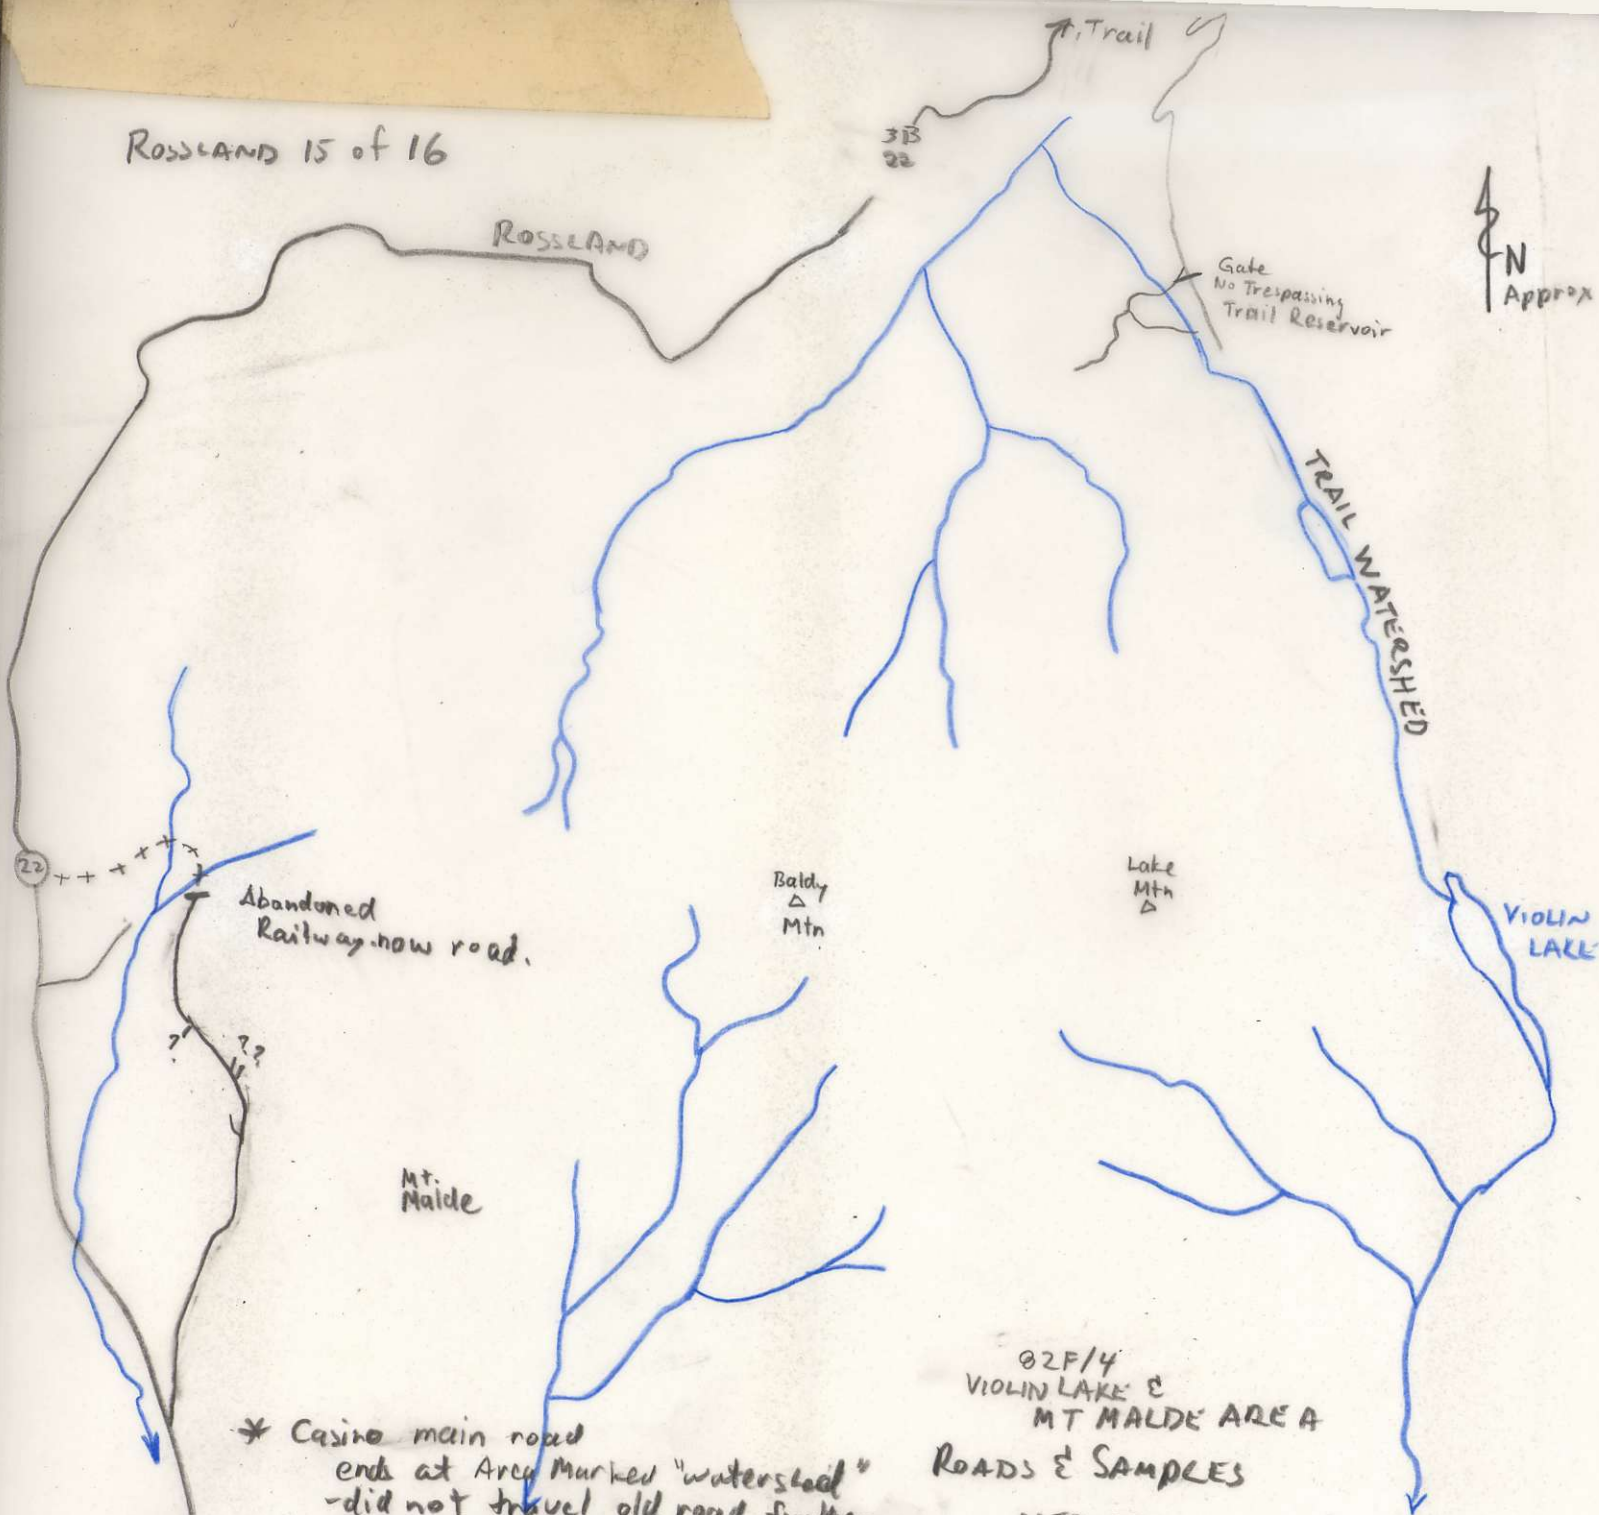 Trail
3B
22
ROSSLAND 15 of 16
ROSSLAND
Gate
No Trespassing
Trail Reservoir
N
Approx
TRAIL WATERSHED
22
Abandoned
Railway now road.
Baldy
Mtn
Lake
Mtn
VIOLIN
LAKE
?
? ?
Mt.
Malde
82F/4
VIOLIN LAKE &
MT MALDE AREA
ROADS & SAMPLES
* Casino main road
ends at Area Marked "watershed"
-did not travel old road